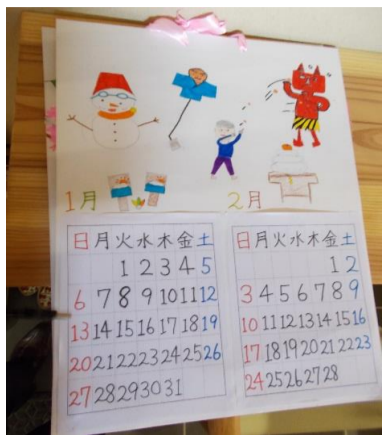 1月
日月火水木金土
1 2 3 4 5
6 7 8 9 10 11 12
13 14 15 16 17 18 19
20 21 22 23 24 25 26
27 28 29 30 31
2月
日月火水木金土
1 2
3 4 5 6 7 8 9
10 11 12 13 14 15 16
17 18 19 20 21 22 23
24 25 26 27 28